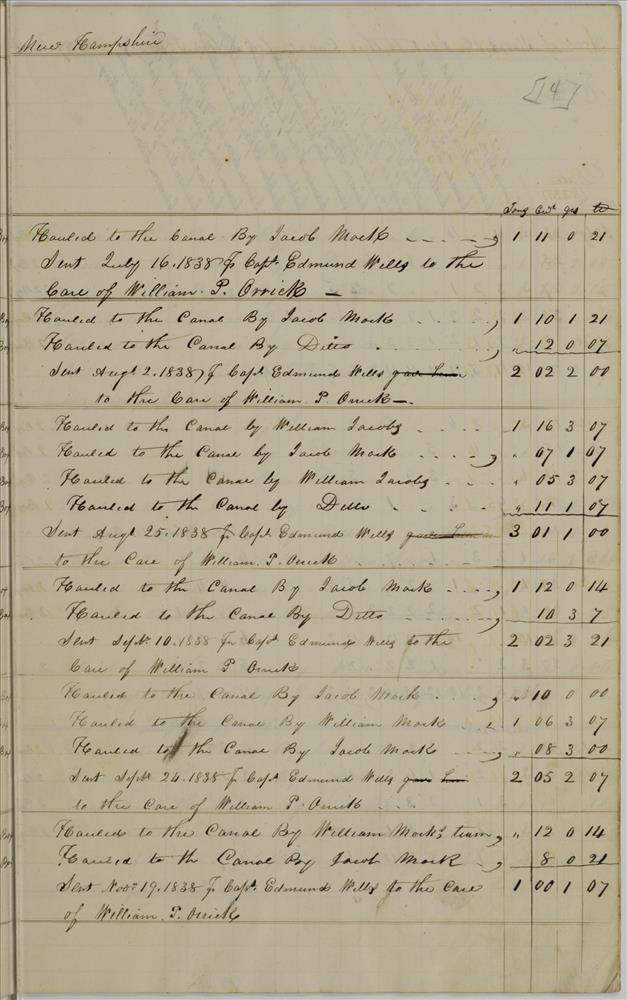 New Hampshire
[14]
Tons Cwt qrs lb
Hauled to the Canal By Jacob Mock - - - - , 1 11 0 21
Sent July 16. 1838 Capt. Edmund Wells to the
Care of William. P. Orrick —
Hauled to the Canal By Jacob Mock - - - - , 1 10 1 21
Hauled to the Canal By Ditto - - - - , " 12 0 07
Sent Augt 2. 1838 Capt. Edmund Wells 2 02 2 00
to the Care of William P. Orrick —.
Hauled to the Canal By William Jacobs - - - - 1 16 3 07
Hauled to the Canal by Jacob Mock - - - - , " 07 1 07
Hauled to the Canal by William Jacobs - - - " 05 3 07
Hauled to the Canal by Ditto - - - - " 11 1 07
Sent Augt 25. 1838 Capt. Edmund Wells 3 01 1 00
to the Care of William. P. Orrick - - - - - -
Hauled to the Canal By Jacob Mock - - - - , 1 12 0 14
Hauled to the Canal By Ditto - - - - - , 10 3 7
Sent Septr. 10. 1838 Capt. Edmund Wells to the 2 02 3 21
Care of William P Orrick
Hauled to the Canal By Jacob Mock - - - , " 10 0 00
Hauled to the Canal By William Mock - - 1 06 3 07
Hauled to the Canal By Jacob Mock - - - , " 08 3 00
Sent Septr. 24. 1838 Capt. Edmund Wells 2 05 2 07
to the Care of William P. Orrick - - -
Hauled to the Canal By William Mock's team, " 12 0 14
Hauled to the Canal By Jacob Mock - , 8 0 21
Sent Novr. 19. 1838 Capt. Edmund Wells to the Care 1 00 1 07
of William. P. Orrick